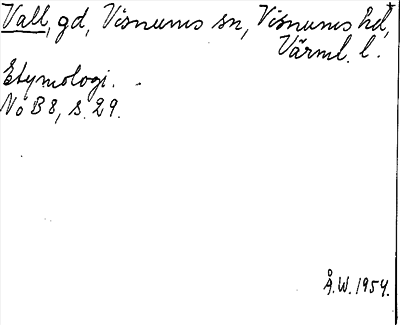 Vall, gd, Visnums sn, Visnums hd,
Värml. l.
Etymologi.
No B 8, s. 29.
Å.W. 1954.